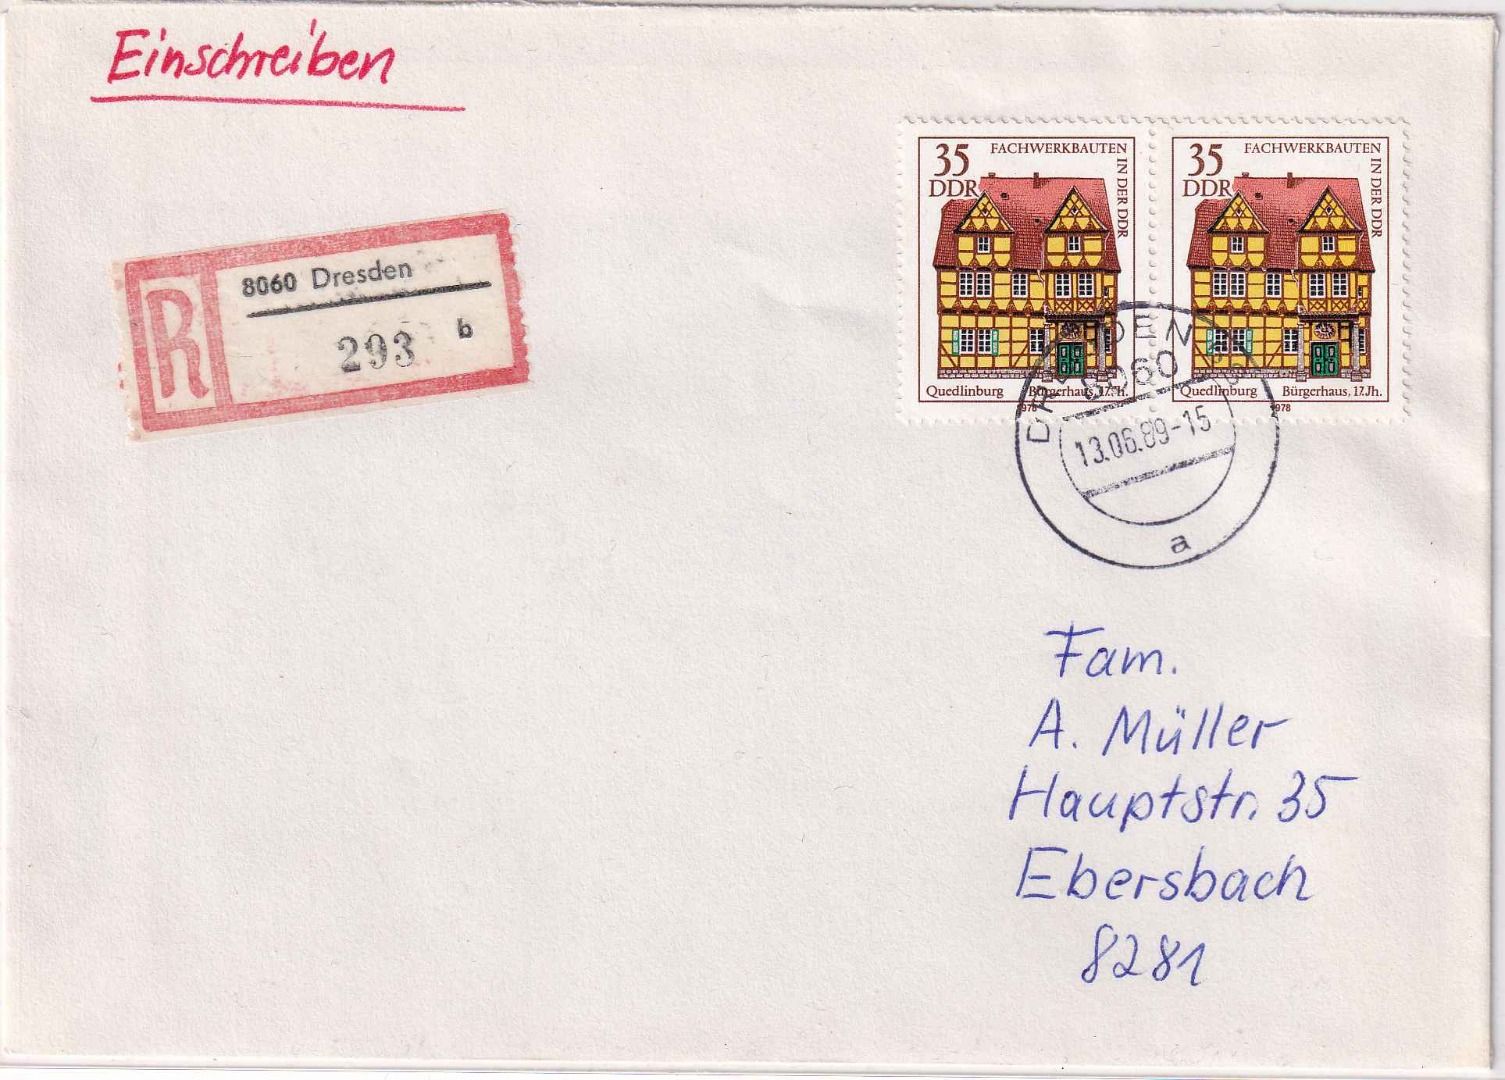 Einschreiben
R
8060 Dresden
293
b
35
DDR
FACHWERKBAUTEN
IN DER DDR
Quedlinburg
Bürgerhaus, 17. Jh.
1978
35
DDR
FACHWERKBAUTEN
IN DER DDR
Quedlinburg
Bürgerhaus, 17. Jh.
1978
DRESDEN
8060
13.06.89-15
a
Fam.
A. Müller
Hauptstr. 35
Ebersbach
8281